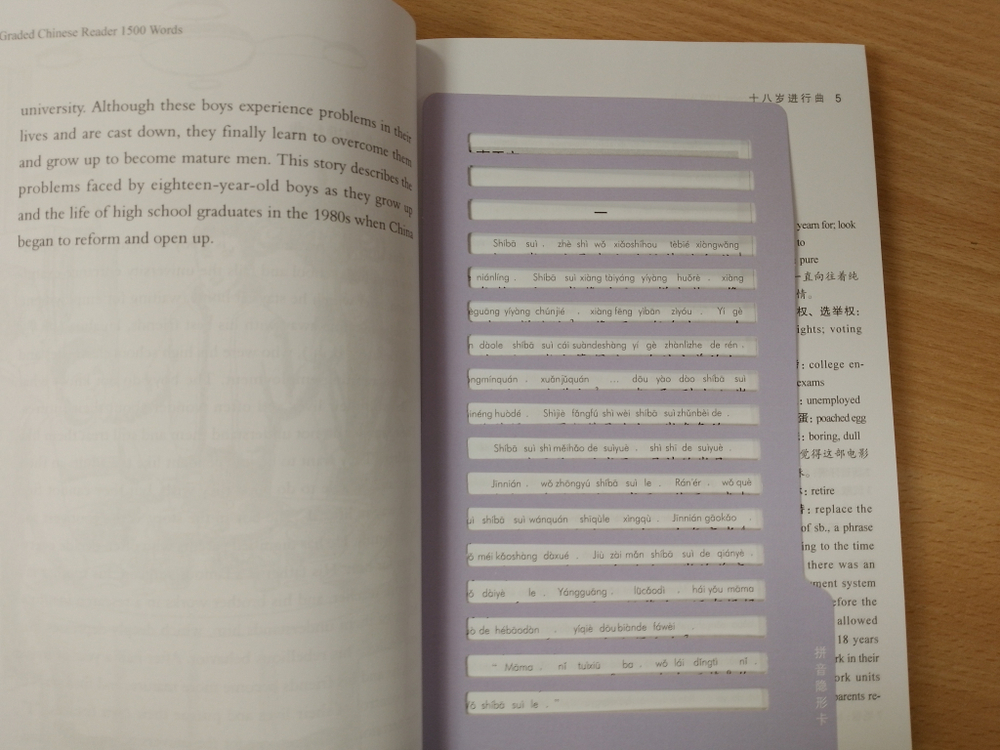 Graded Chinese Reader 1500 Words
university. Although these boys experience problems in their
lives and are cast down, they finally learn to overcome them
and grow up to become mature men. This story describes the
problems faced by eighteen-year-old boys as they grow up
and the life of high school graduates in the 1980s when China
began to reform and open up.
十八岁进行曲 5
一
Shíbā suì , zhè shì wǒ xiǎoshíhou tèbié xiàngwǎng
niánlíng . Shíbā suì xiàng tàiyáng yíyàng huǒrè , xiàng
yíyàng chúnjié , xiàng fēng yìbān zìyóu . Yí gè
dàole shíbā suì cái suàndeshàng yí gè zhànlìzhe de rén .
xuǎnjǔquán ... dōu yào dào shíbā suì
huòdé . Shìjiè fǎngfú shì wèi shíbā suì zhǔnbèi de .
Shíbā suì shì měihǎo de suìyuè , shì shī de suìyuè .
Jīnnián , wǒ zhōngyú shíbā suì le . Rán'ér , wǒ què
shíbā suì wánquán shīqùle xìngqù . Jīnnián gāokǎo ,
méi kǎoshàng dàxué . Jiù zài mǎn shíbā suì de qiányè ,
dàiyè le . Yángguāng , lǜcǎodì , hái yǒu māma
de hébāodàn , yíqiè dōu biànde fáwèi .
“ Māma , nǐ tuìxiū ba , wǒ lái dǐngtì nǐ .
shíbā suì le . ”
yearn for; look
to
pure
一直向往着纯
情。
权、选举权:
ights; voting
: college en-
exams
: unemployed
蛋: poached egg
: boring, dull
觉得这部电影
: retire
: replace the
of sb., a phrase
ing to the time
there was an
ment system
efore the
allowed
18 years
rk in their
ork units
parents re-
拼音隐形卡